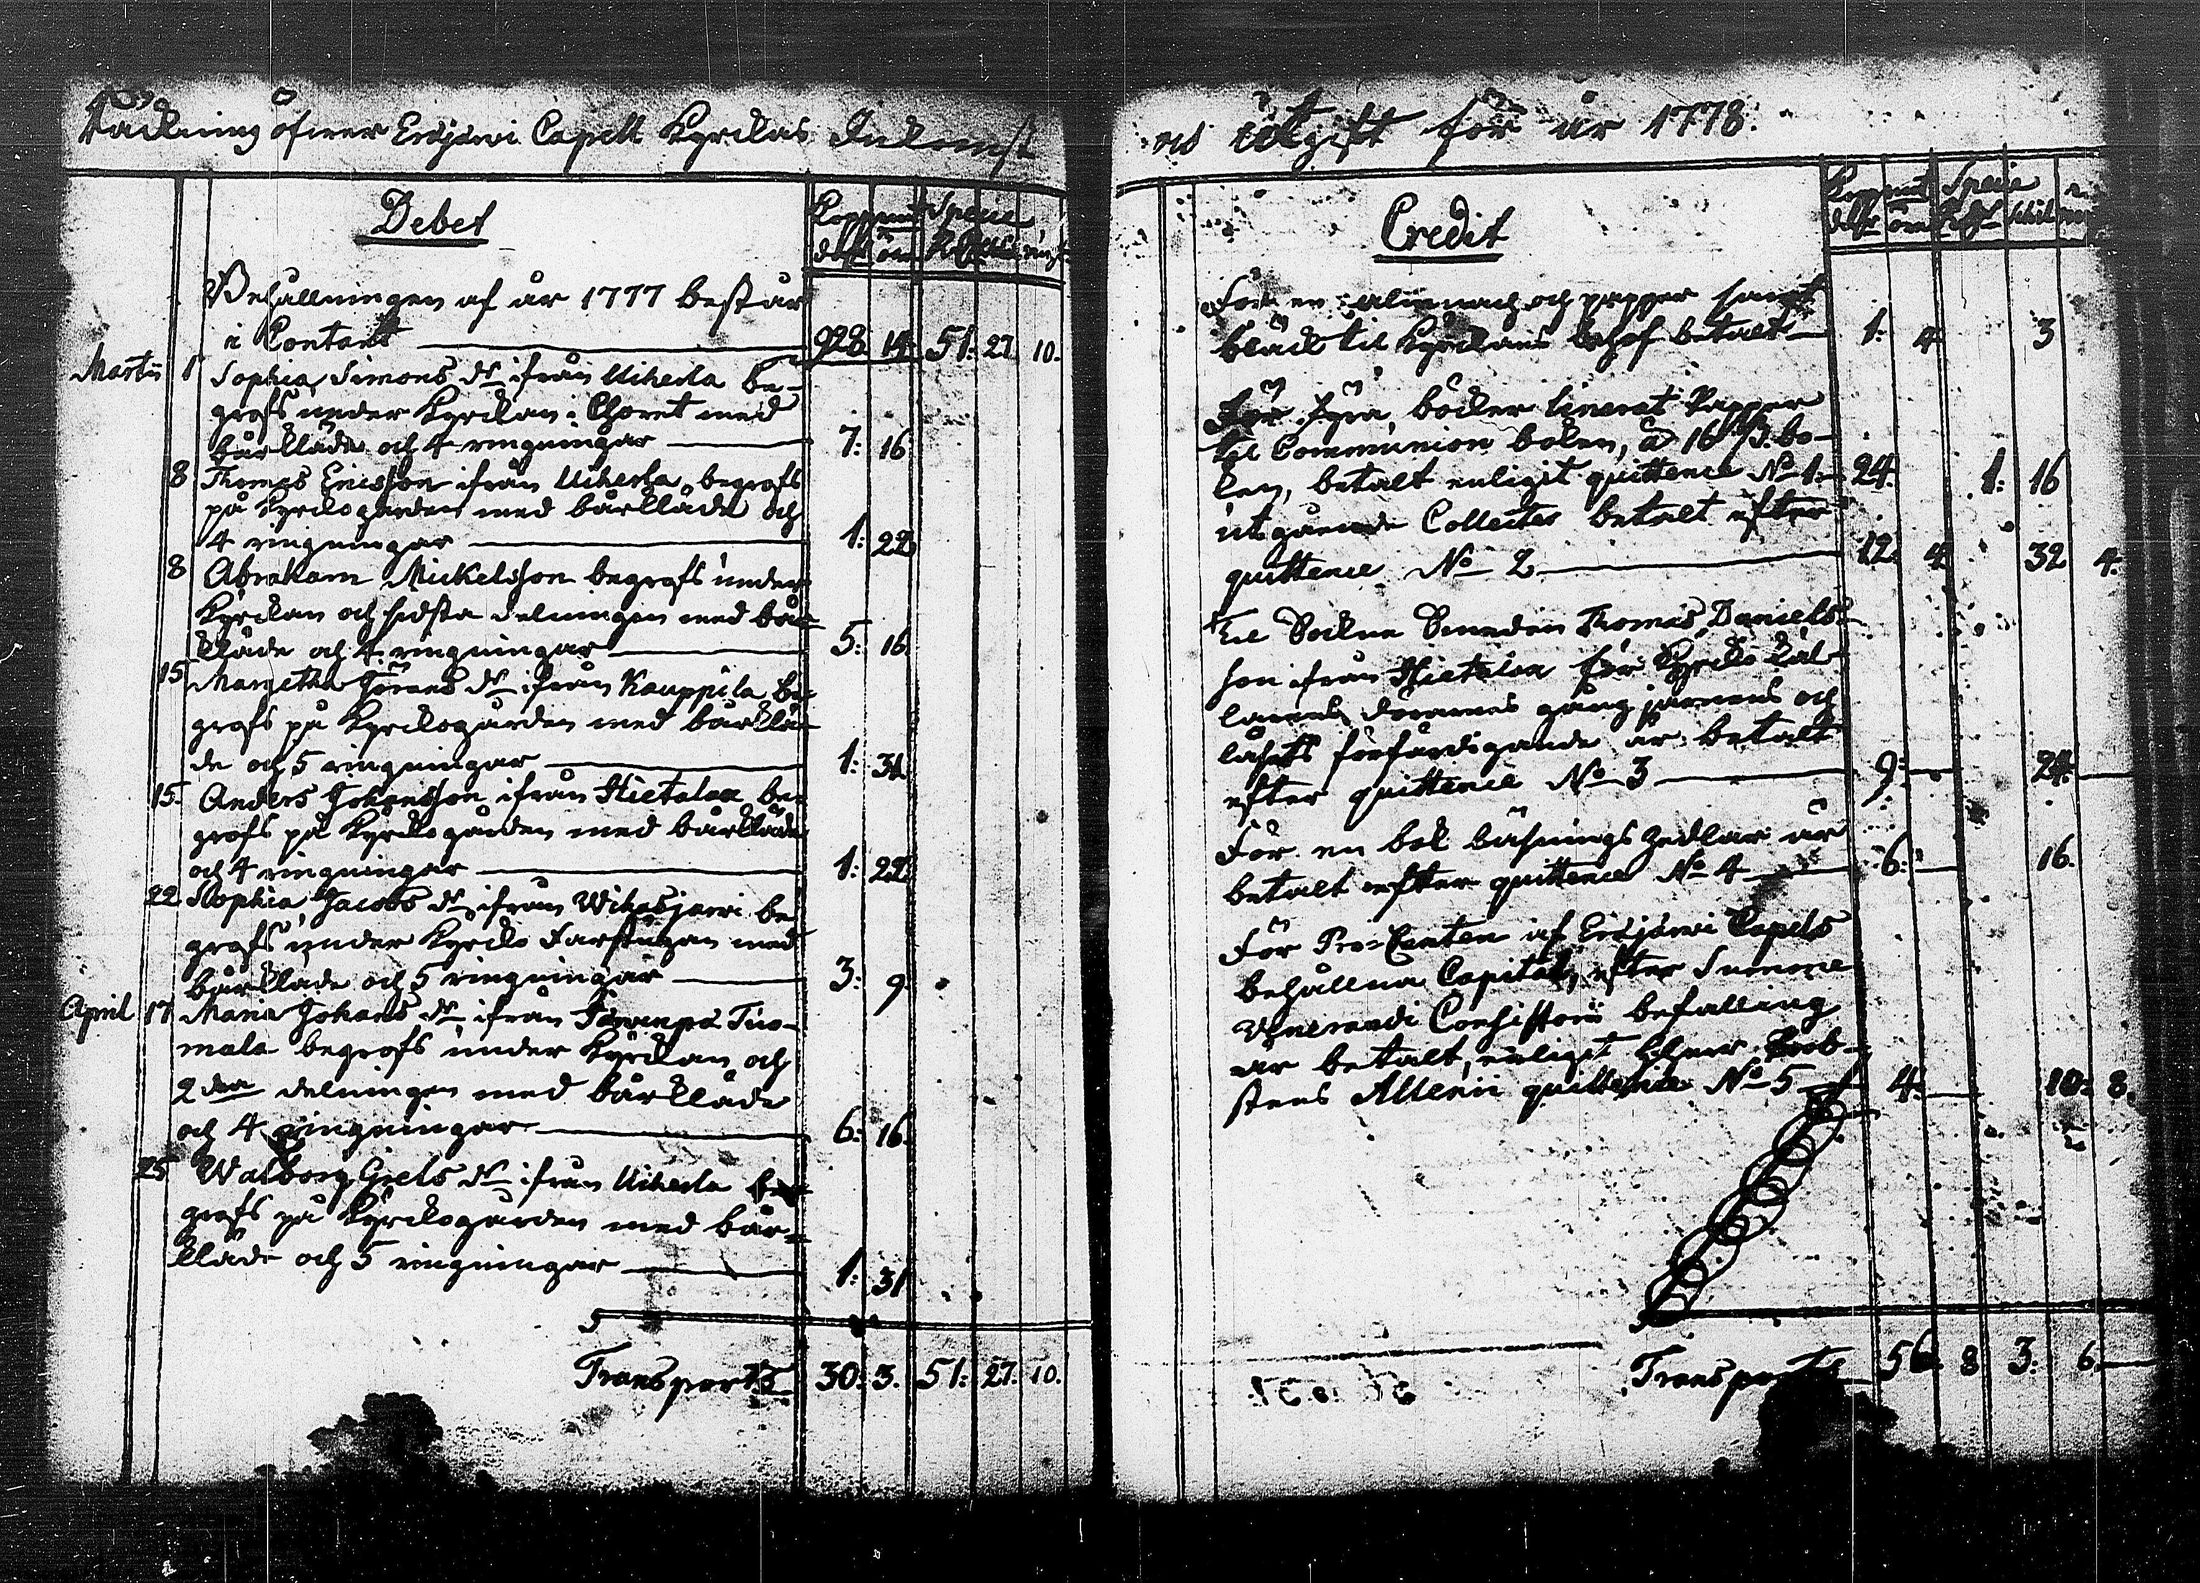 Räckning öfwer Eräjärwi Capell Kyrckas Inkomst
och utgift för år 1778.
Debet
Kopp.mt Specie
dalr öre R.d. skil. rst.
Behållningen af år 1777 består
i Contant 928. 14. 51: 27. 10.
Martii 1 Sophia Simons dr ifrån Uiherla be-
grofs under Kyrckan i Choret med
bårkläde och 4 ringningar 7: 16.
8 Thomas Ericsson ifrån Uiherla begrofs
på Kyrckogården med bårkläde och
4 ringningar 1: 22.
8 Abraham Mickelsson begrofs under
Kyrckan och sidsta delningen med bår-
kläde och 4 ringningar 5: 16.
15 Margetha Görans dr ifrån Kauppila be-
grofs på Kyrckogården med bårklä-
de och 5 ringningar 1: 31.
15. Anders Johansson ifrån Hietalaa be-
grofs på Kyrckogården med bårkläde
och 4 ringningar 1: 22.
22. Sophia Jacobs dr ifrån Wihasjarwi be-
grofs under Kyrcko Farstugan med
bårkläde och 5 ringningar 3: 9.
April 17 Maria Johans dr ifrån Tuo-
mala begrofs under Kyrckan och
2 dra delningen med bårkläde
och 4 ringningar 6: 16.
25 Walborg Grels dr ifrån Uiherla be-
grofs på Kyrckogården med bår-
kläde och 5 ringningar 1: 31
Transport 30: 3. 51: 27. 10.
Credit
Kopp.mt Specie
dalr öre R.d. skil. rst.
För en almenach och papper samt
bläck til Kyrckans behof betalt 1: 4. 3
För fyra böcker linerat Papper
til Communion boken, à 16 ß bo-
ken, betalt enligit quittence No 1. 24. 1: 16
utgående Collecter betalt efter
quittence No 2 12. 4. 32 4.
Til Sockne Smeden Thomas Daniels-
son ifrån Hietalaa för Kyrcko käl-
larens dörarnes gångjärnens och
låsets förfärdigande är betalt
efter quittence No 3 9. 24.
För en bok låsnings Zedlar är
betalt efter quittence No 4 6. 16.
För Pro-Centen af Eräjärwi Capels
behållna Capital, efter Summe
Venerandi Consistorii befalling
är betalt, enligit Herr Prob-
stens Allenii quittence No 5 4. 10. 8.
Transport 56. 8 3. 6.